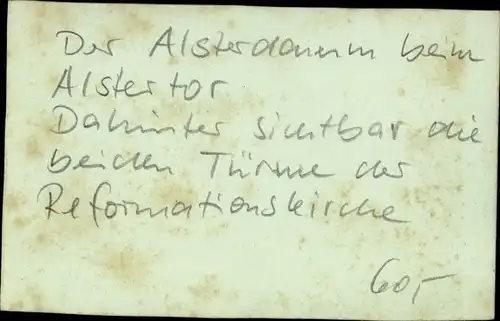 Der Alsterdamm beim
Alstertor
Dahinter sichtbar die
beiden Türme der
Reformationskirche
60,-